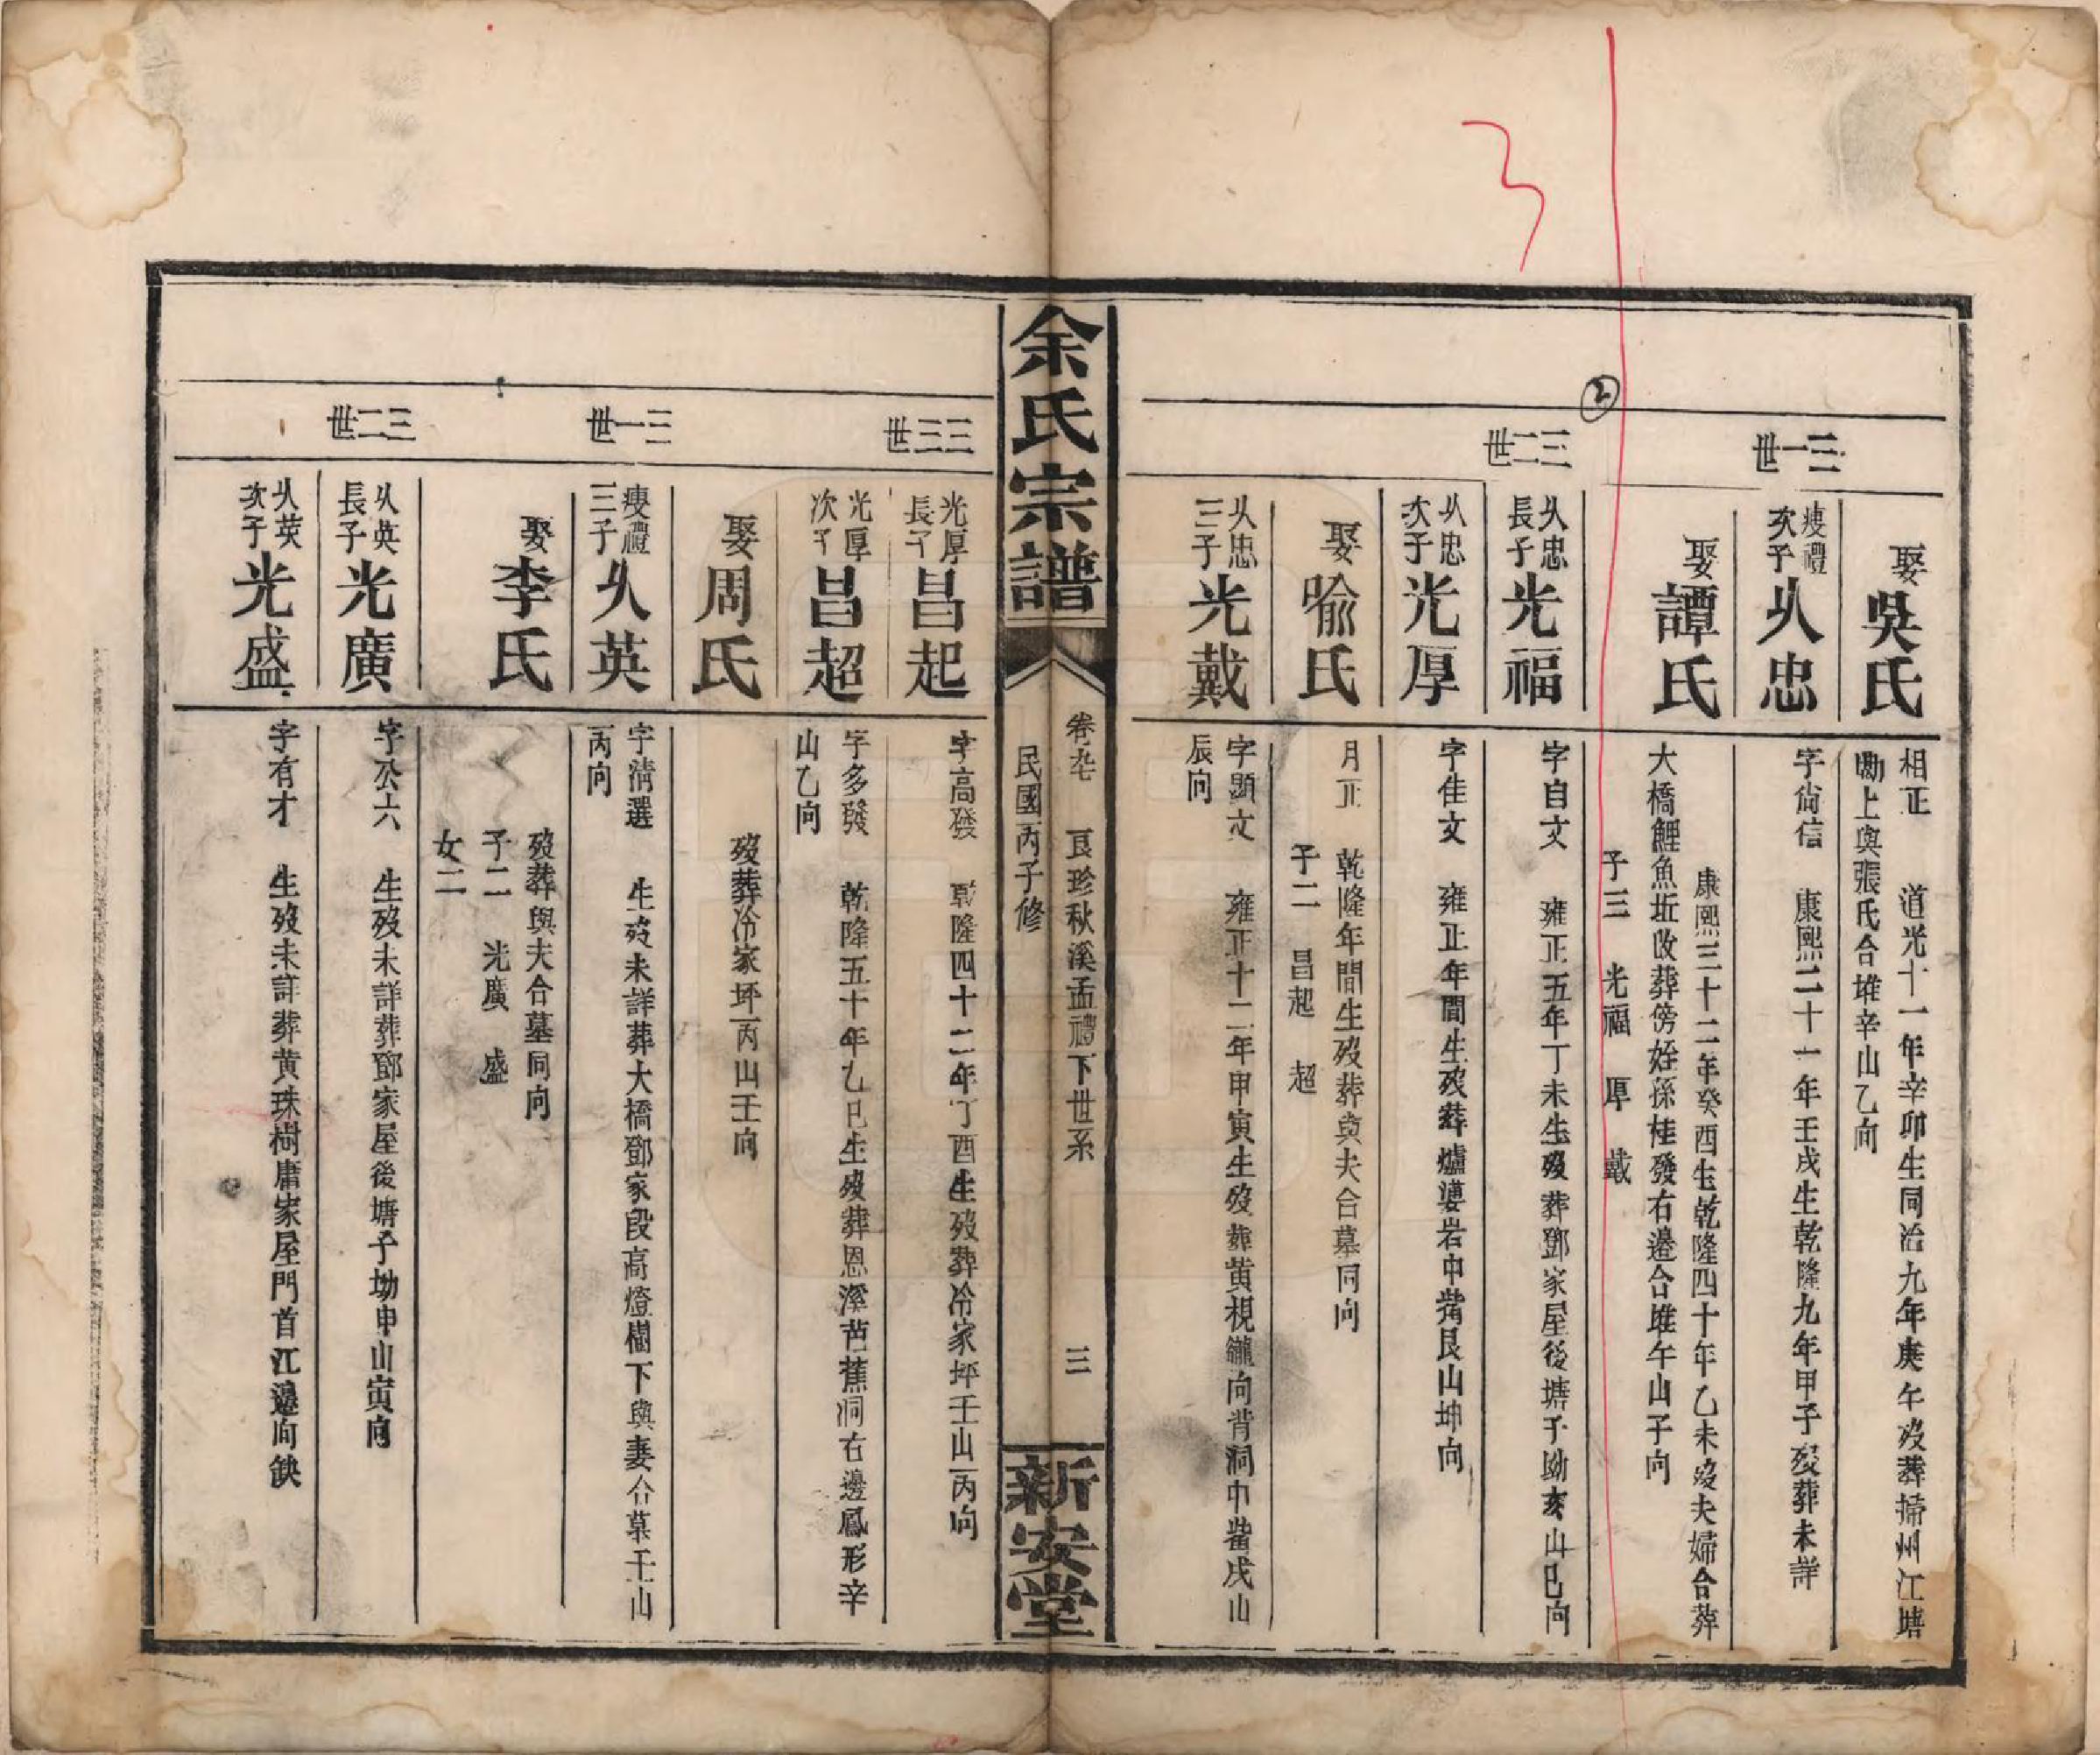 三一世
三二世
②
娶吳氏
相正 道光十一年辛卯生同治九年庚午歿葬掃州江塘
勘上與張氏合堆辛山乙向
瘐禮次子乆忠
字尙信 康熙二十一年壬戌生乾隆九年甲子歿葬未詳
娶譚氏
康熙三十二年癸酉生乾隆四十年乙未歿夫婦合葬
大橋鯉魚坵改葬傍姪孫桂發右邊合堆午山子向
子三 光福 厚 戴
乆忠長子光福
字自文 雍正五年丁未生歿葬鄧家屋後塘子坳亥山巳向
乆忠次子光厚
字佳文 雍正年間生歿葬爐婆岩中嘴艮山坤向
娶喻氏
月正 乾隆年間生歿葬與夫合墓同向
子二 昌起 超
乆忠三子光戴
字顯文 雍正十二年甲寅生歿葬黄枧向背洞中嘴戌山
辰向
余氏宗譜
卷九 艮珍秋溪孟禮下世系 三
民國丙子修
新安堂
三三世
三一世
三二世
光厚長子昌起
字高發 乾隆四十二年丁酉生歿葬冷家坪壬山丙向
光厚次子昌超
字多發 乾隆五十年乙巳生歿葬恩溪芭蕉洞右邊鳳形辛
山乙向
娶周氏
歿葬冷家坪丙山壬向
瘐禮三子乆英
字清選 生歿未詳葬大橋鄧家段高燈樹下與妻合墓壬山
丙向
娶李氏
歿葬與夫合墓同向
子二 光廣 盛
女二
乆英長子光廣
字公六 生歿未詳葬鄧家屋後塘子坳申山寅向
乆英次子光盛
字有才 生歿未詳葬黄珠樹庸家屋門首江邊向缺